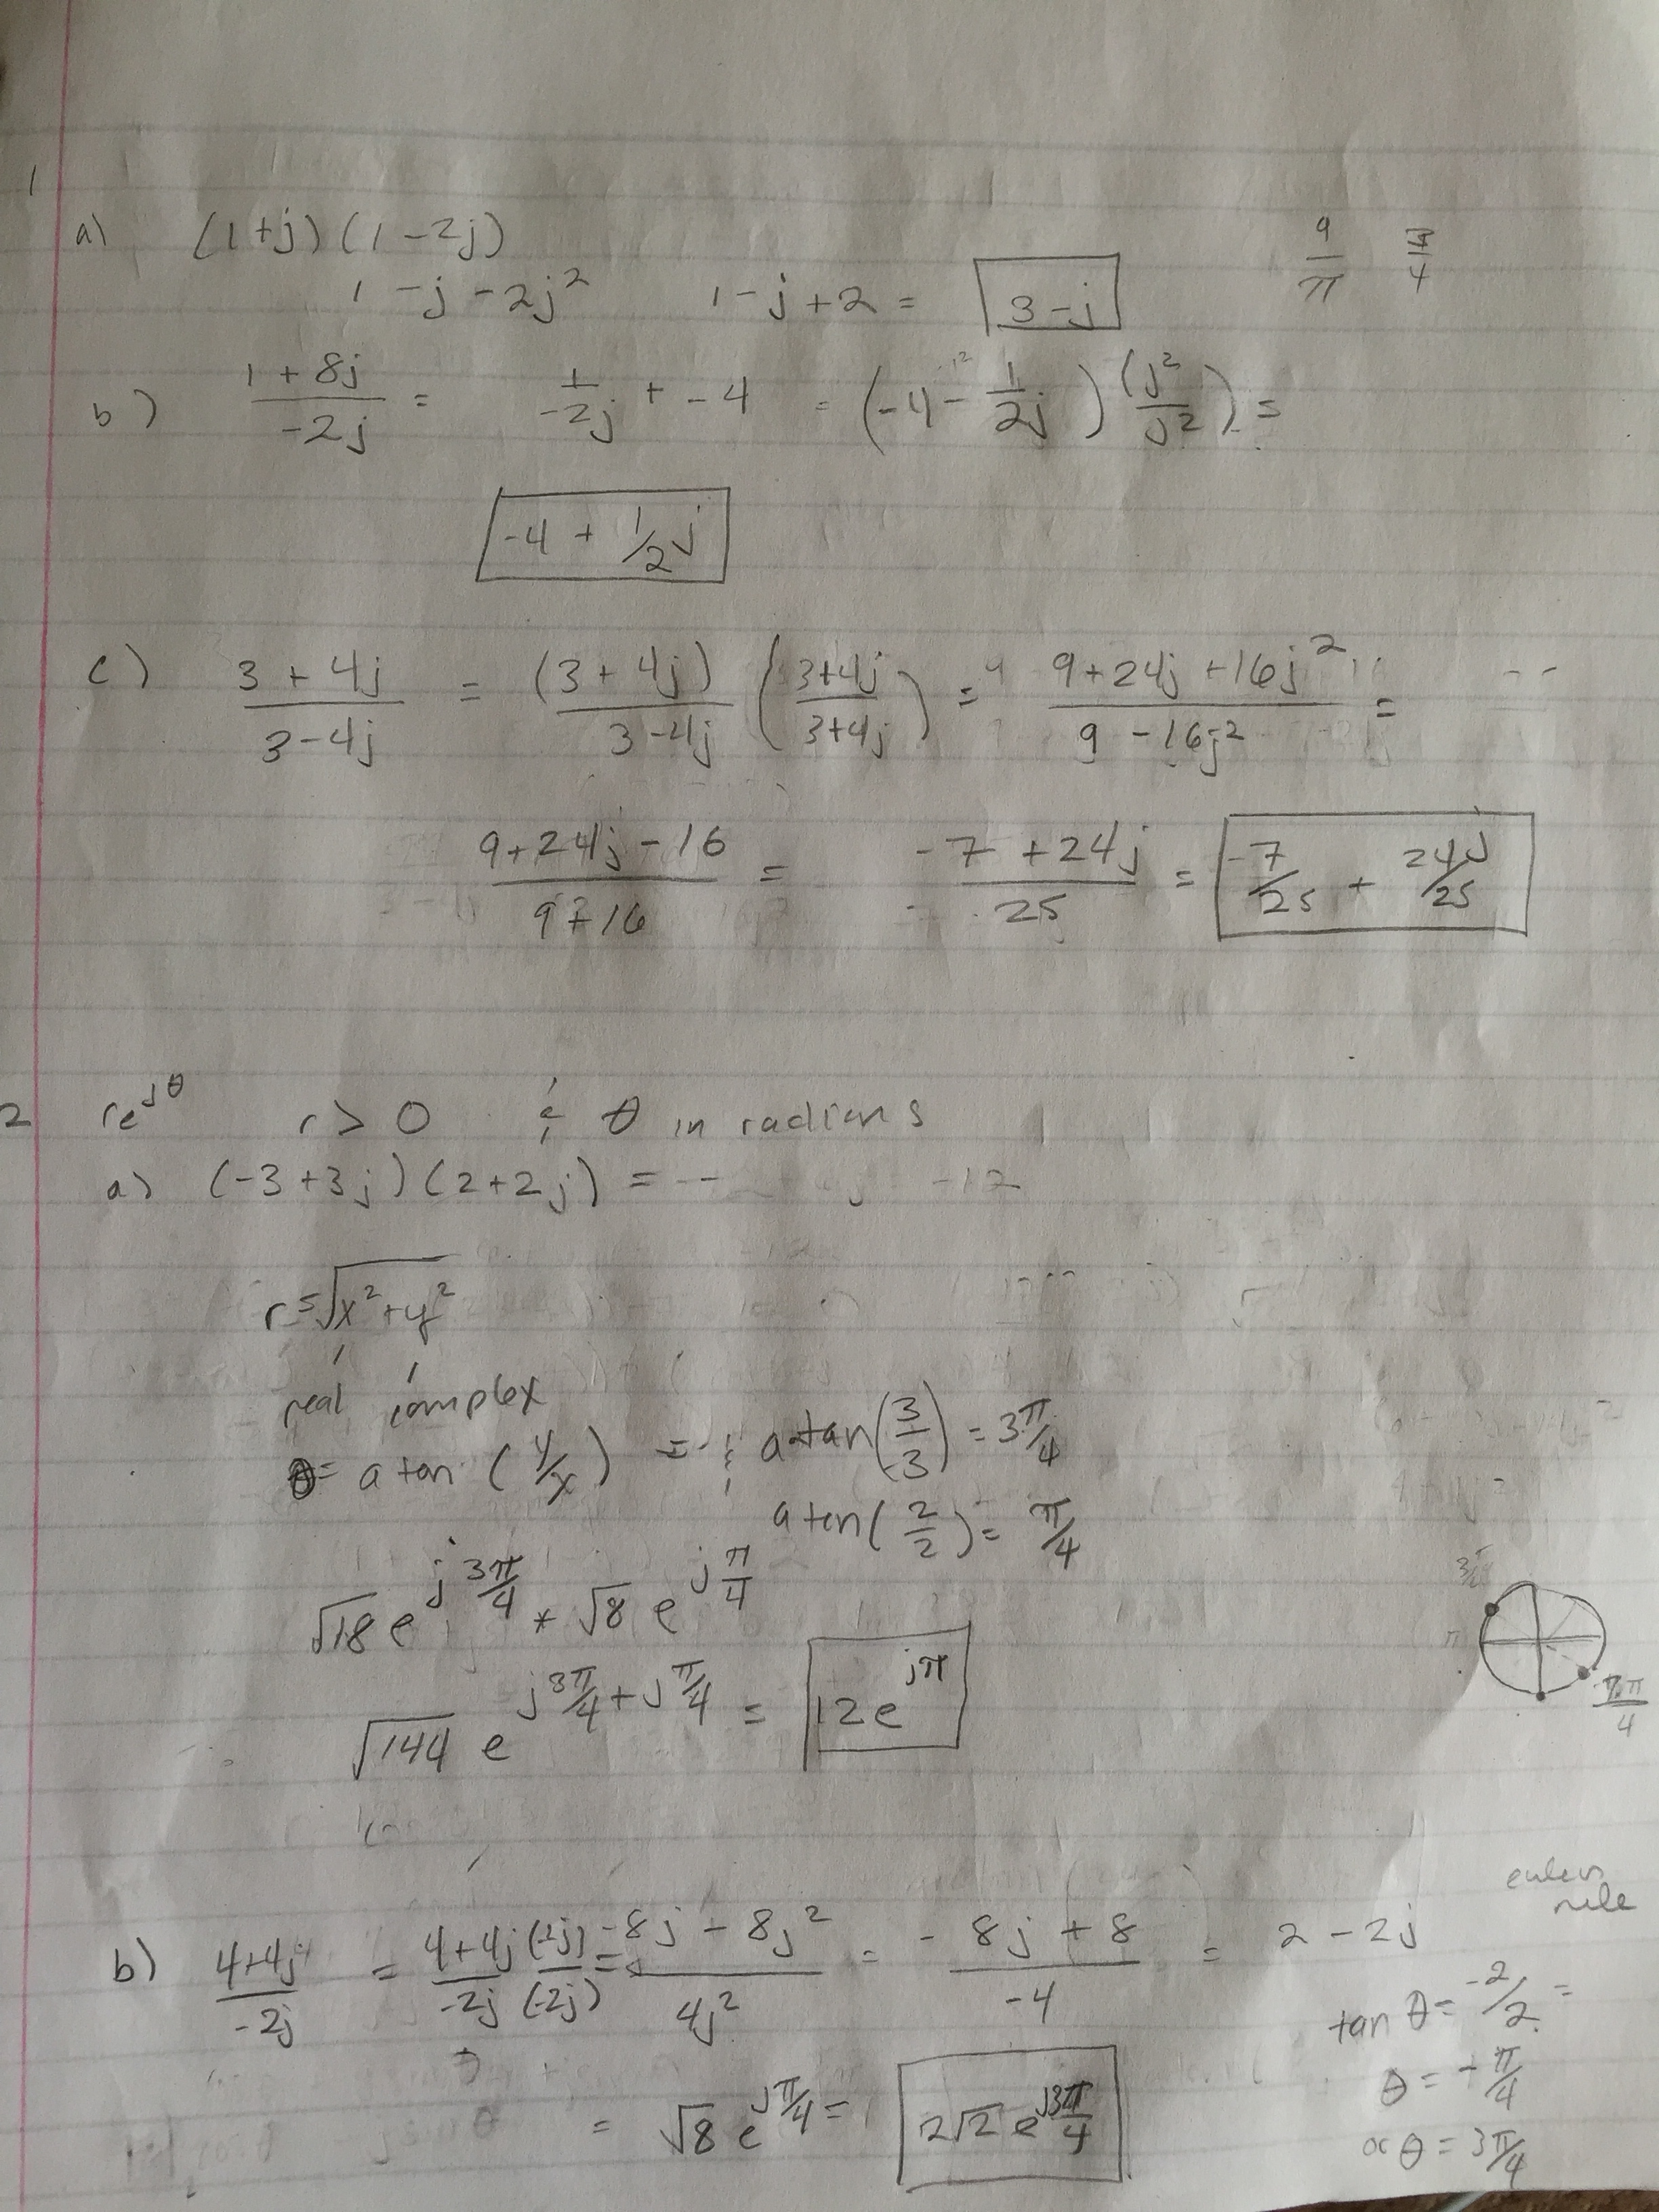 1
a) (1+j)(1-2j)
1 -j -2j² 1-j+2 = 3-j
9/π π/4
b) (1+8j)/(-2j) = 1/(-2j) + -4 = (-4 - 1/(2j))(j²/j²) =
-4 + 1/2 j
c) (3+4j)/(3-4j) = (3+4j)/(3-4j) ((3+4j)/(3+4j)) = (9+24j+16j²)/(9-16j²) =
(9+24j-16)/(9+16) = (-7+24j)/25 = -7/25 + 24j/25
2 re^jθ r > 0 & θ in radians
a) (-3+3j)(2+2j) = -12
r=√(x²+y²)
real complex
θ= atan (y/x) = atan(3/-3) = 3π/4
atan(2/2) = π/4
√18 e^(j3π/4) * √8 e^(jπ/4)
√144 e^(j3π/4+jπ/4) = 12e^jπ
π
π/4
eulers rule
b) (4+4j)/(-2j) = (4+4j)/(-2j) (-2j)/(-2j) = (-8j-8j²)/(4j²) = (-8j+8)/(-4) = 2-2j
tan θ = -2/2 =
θ = -π/4
or θ = 3π/4
= √8 e^(jπ/4) = 2√2 e^(j3π/4)